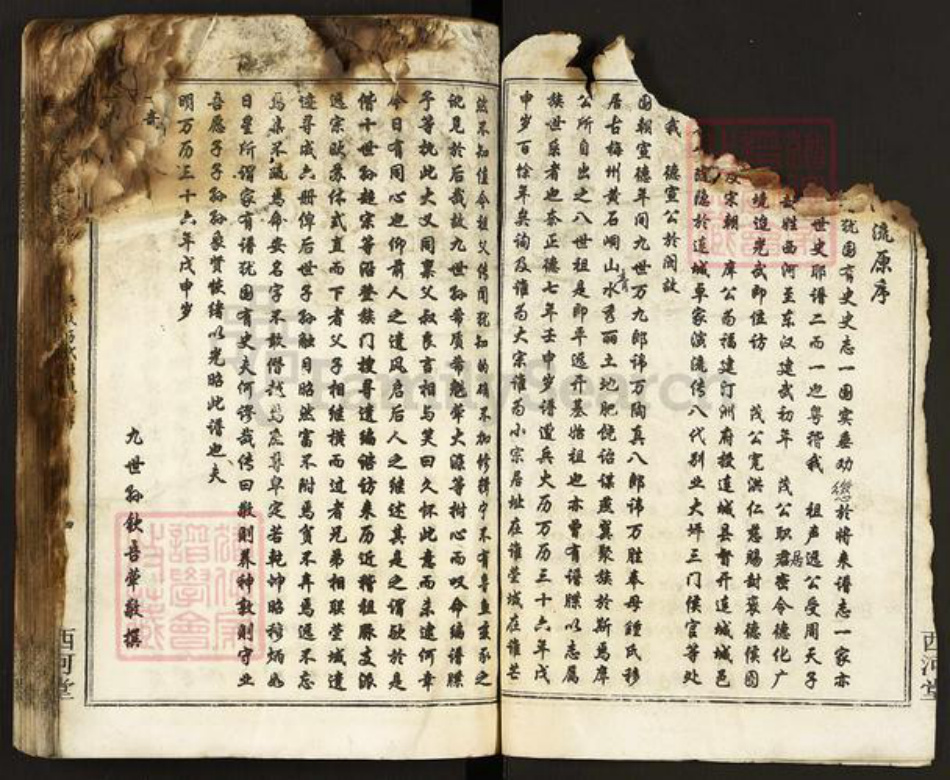 流原序
犹国有史史志一国实垂劝惩於将来谱志一家亦
世史耶谱二而一也粤稽我 祖声远公受周天子
姓西河至东汉建武初年 茂公职居密令德化广
境迨光武即位访 茂公宽洪仁慈赐封褒德侯因
宋朝 库公为福建汀州府授连城县督开连城城邑
隐於连城卓家演流传八代别业大坪三门侯官等处
我 德宣公於闽故
国朝宣德年间九世万九郎讳万陶真八郎讳万胜奉母钟氏移
居古梅州黄石峒山水青秀丽土地肥饶诒谋燕翼聚族於斯焉库
公所自出之八世祖是即平远开基始祖也亦曾有谱牒以志属
族世系者也奈正德七年壬申岁谱遭兵火历万历三十六年戊
申岁百馀年矣询及谁为大宗谁为小宗居址在谁茔域在谁芒
然不知值令叔父传闻犹知的确不加修辑宁不有鲁鱼亥豕之
讹见於后哉故九世孙带质带魁荣大源等拊心而叹命编谱牒
予等执此大义同禀父叔良言相与笑曰久怀此意而未逮何幸
今日有同心也仰前人之遗风启后人之继述其是之谓欤於是
偕十世孙超宗等沿登族门搜寻遗编谘访来历近稽祖脉支派
远宗欧苏体式直而下者父子相继横而过者兄弟相联茔域遗
迹寻成六册俾后世子孙触目昭然富不附焉贫不弃焉远不忘
焉亲不疏焉命安名字不敢僭越焉庶尊卑定若乾坤昭穆炳如
日星所谓家有谱犹国有史夫何谬哉传曰敬则养神敦则守业
吾愿子子孙孙象贤恢绪以光昭此谱也夫
明万历三十六年戊申岁
九世孙钦吾荣敬撰
西河堂
西河堂
FamilySearch